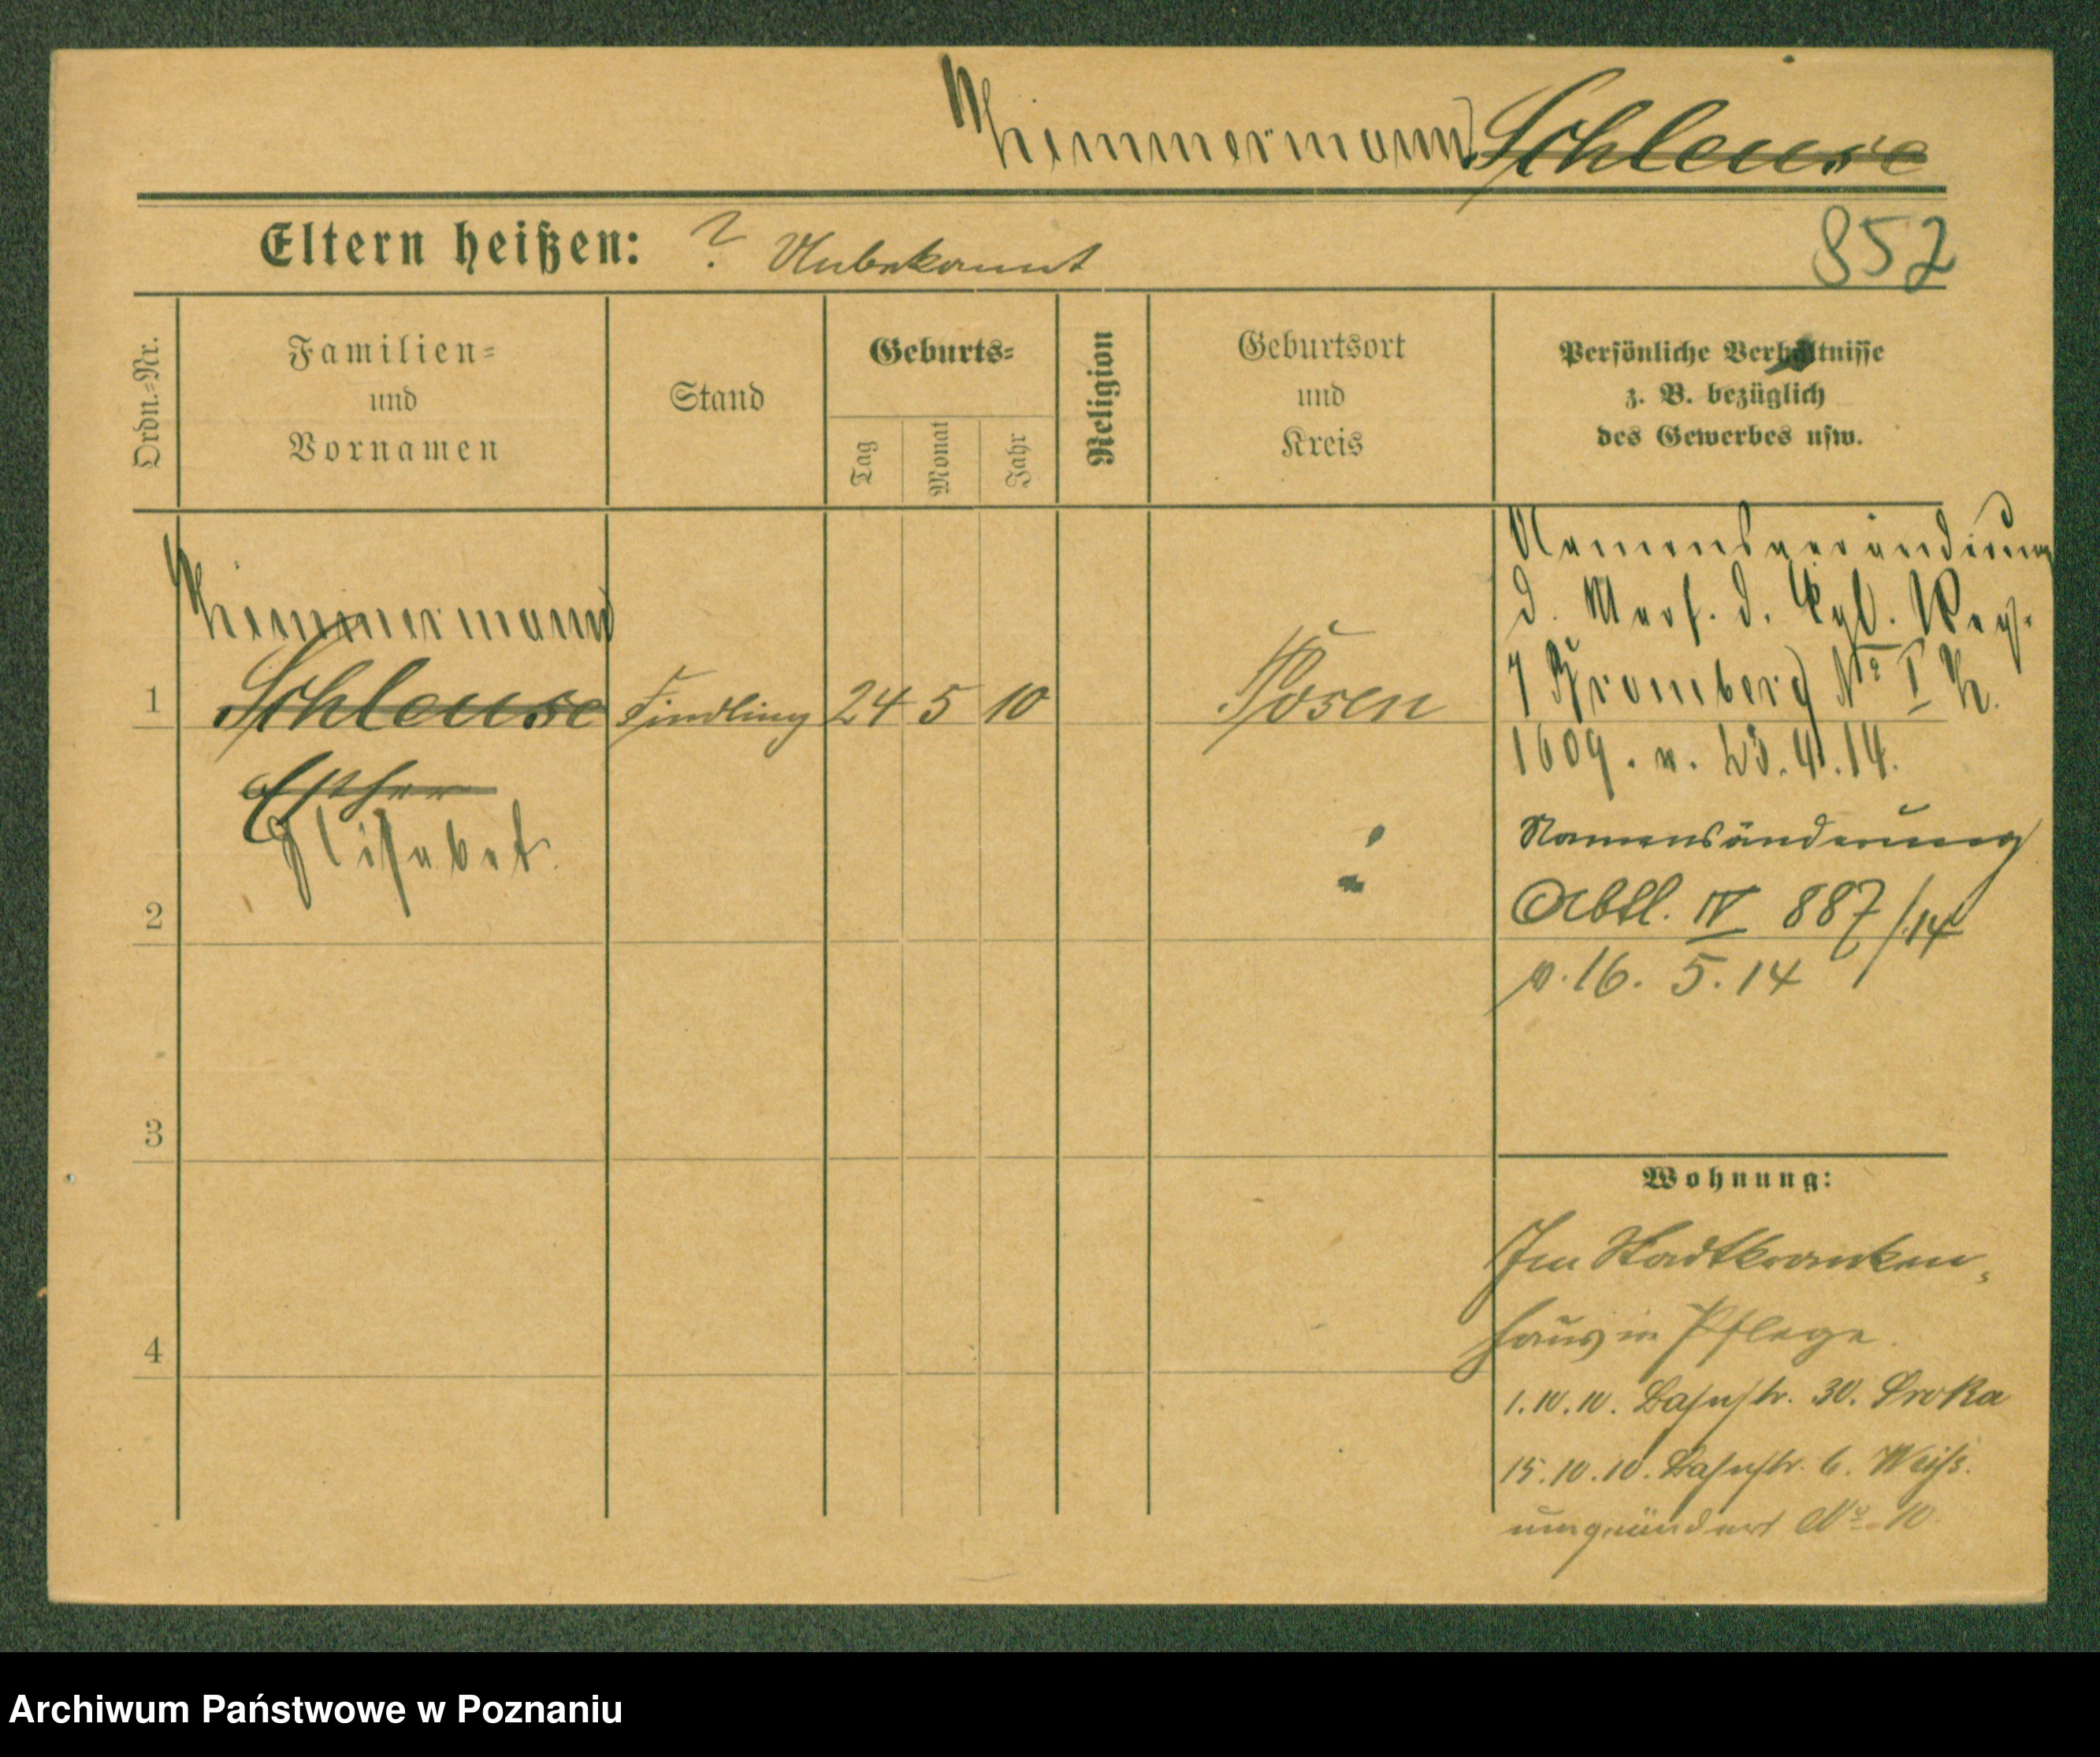 Zimmermann Schleuse
Eltern heißen: ? Unbekannt
857
Ordn.=Nr.
Familien=
und
Vornamen
Stand
Geburts=
Tag
Monat
Jahr
Religion
Geburtsort
und
Kreis
Persönliche Verhältnisse
z. B. bezüglich
des Gewerbes usw.
Zimmermann
1 Schleuse Findling 24 5 10 Posen
Esther
Elisabet
2
3
4
Namensveränderung
d. Verf. d. Kgl. Reg.
z Bromberg No I Z.
1609. v. 23.4.14.
Namensänderung
Abtl. IV 887/14
v. 16. 5. 14
Wohnung:
Im Stadtkranken=
haus in Pflege.
1.10.10. Bahnstr. 30.
15.10.10. Bahnstr. 6. Weiß.
No 10
Archiwum Państwowe w Poznaniu